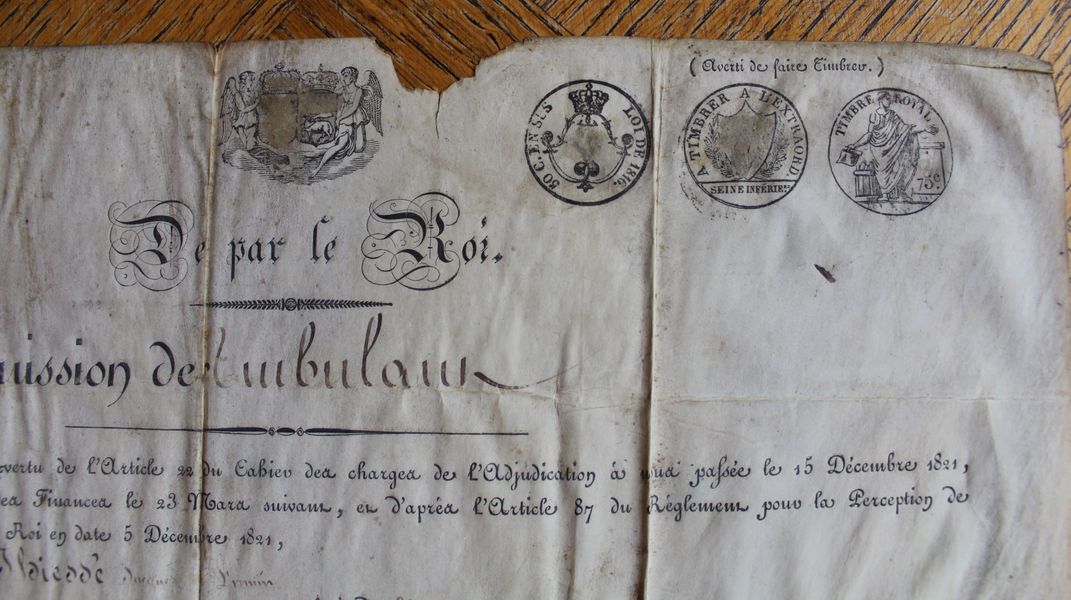 (Averti de faire Timbrer.)
50 C. EN SUS LOI DE 1816.
A TIMBRER A L'EXTRAORD.
SEINE INFÉRIE.
TIMBRE ROYAL
75 c.
De par le Roi.
mission de Ambulant
vertu de l'Article 22 du Cahier des charges de l'Adjudication à passée le 15 Décembre 1821,
des Finances le 23 Mars suivant, et d'après l'Article 87 du Réglement pour la Perception de
Roi en date 5 Décembre 1821,